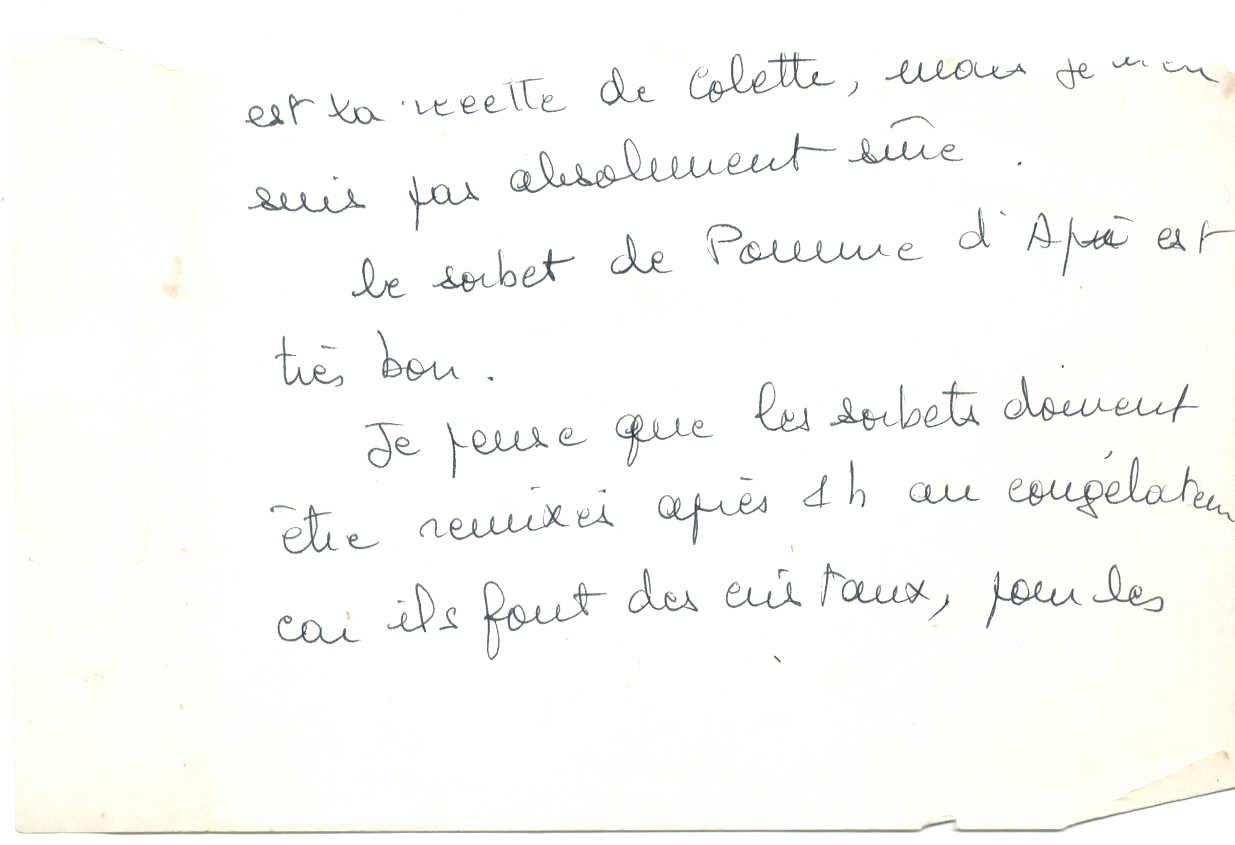 est la recette de Colette, mais je n'en
suis pas absolument sûre.
Le sorbet de Pomme d'Api est
très bon.
Je pense que les sorbets doivent
être remixés après 1h au congélateur
car ils font des cristaux, pour les